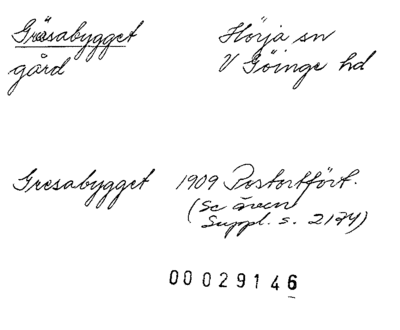 Gräsabygget Hörja sn
gård V Göinge hd
Gresabygget 1909 Postortfört.
(Se även
Suppl. s. 2174)
00029146